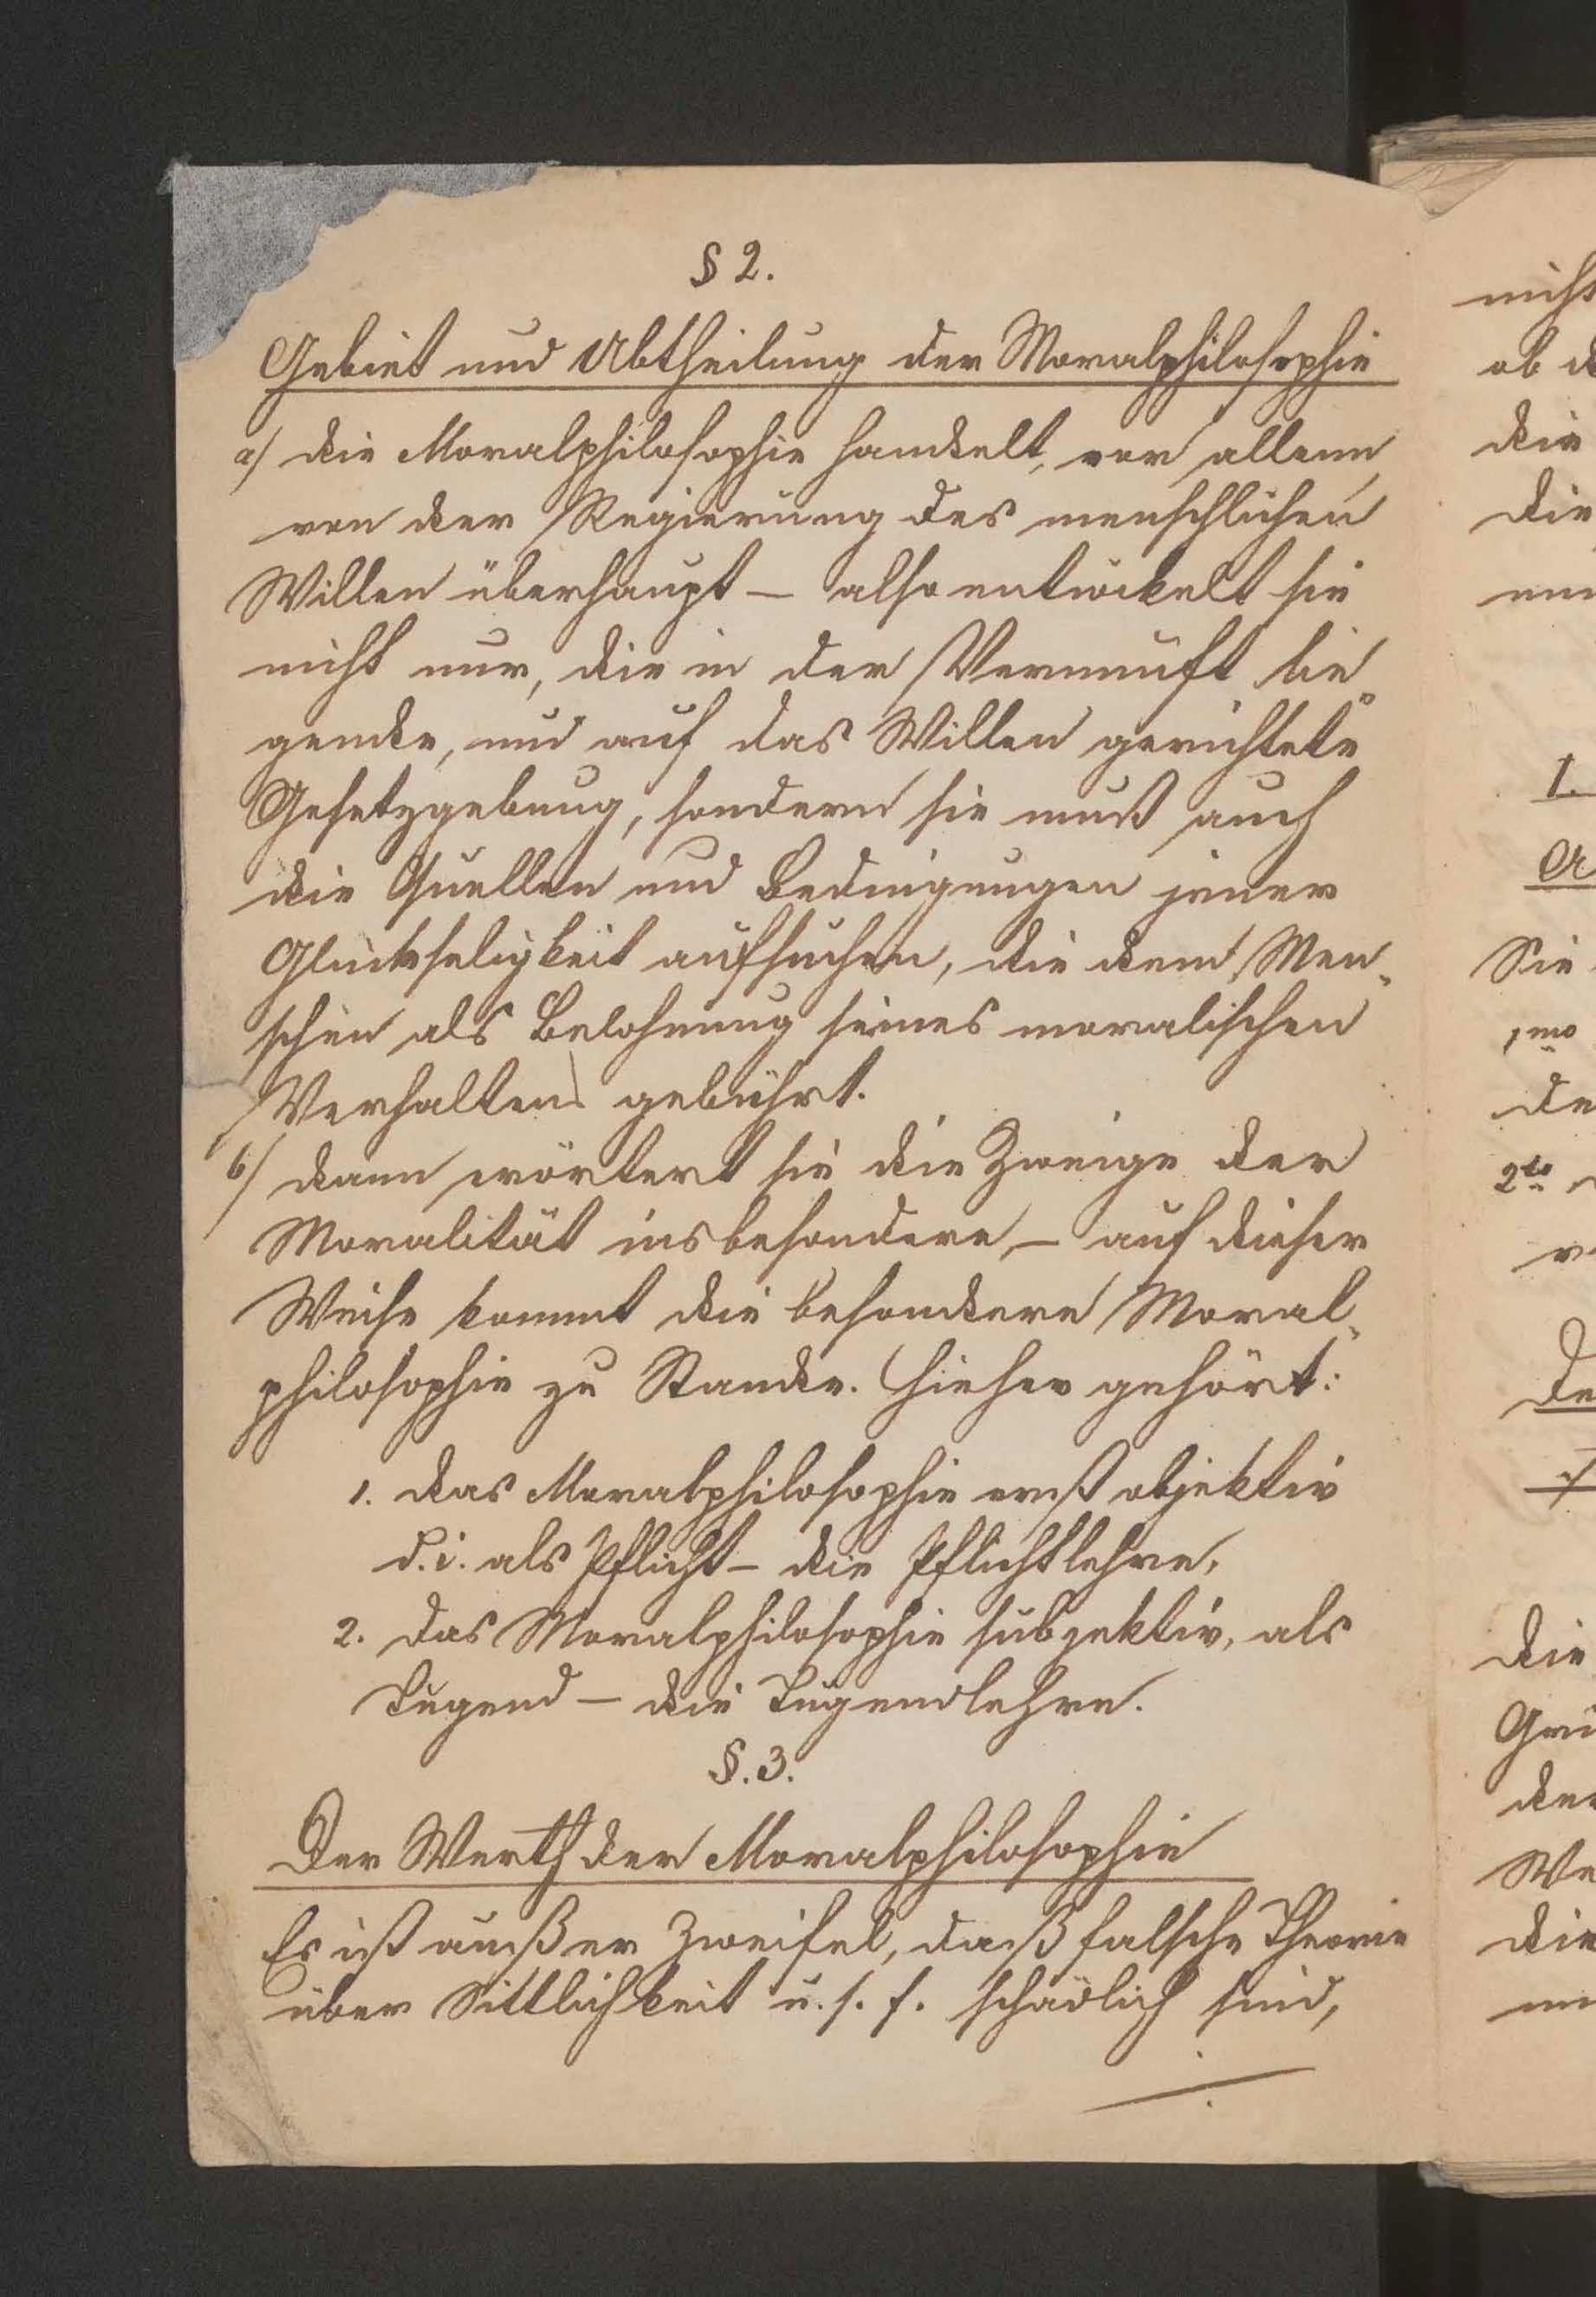 § 2.
Gebiet und Abtheilung der Moralphilosophie
a/ die Moralphilosophie handelt, vor allem,
von der Regierung des menschlichen
Willen überhaupt – also entwickelt sie
nicht nur, die in der Vernunft lie„
gende, und auf das Willen gerichtete
Gesetzgebung, sondern sie muß auch
die Quellen und Bedingungen jener
Glückseligkeit aufsuchen, die dem Men„
schen als Belohnung seines moralischen
Verhalten gebührt.
b/ dann erörtert sie die Zweige der
Moralität ins besondere, – auf dieser
Weise kommt die besondere Moral„
philosophie zu Stande. Hieher gehört:
1. das Moralphilosophie erst objektiv
d.i. als Pflicht – die Pflichtlehre,
2. das Moralphilosophie subjektiv, als
Tugend – die Tugendlehre.
§. 3.
Der Werth der Moralphilosophie
Es ist außer Zweifel, daß falsche Theorie
über Sittlichkeit u. s. f. schädlich sind,
nicht
ob d
die
die
I.
Sie
1mo
de
2do
De
die
Grü
der
We
die